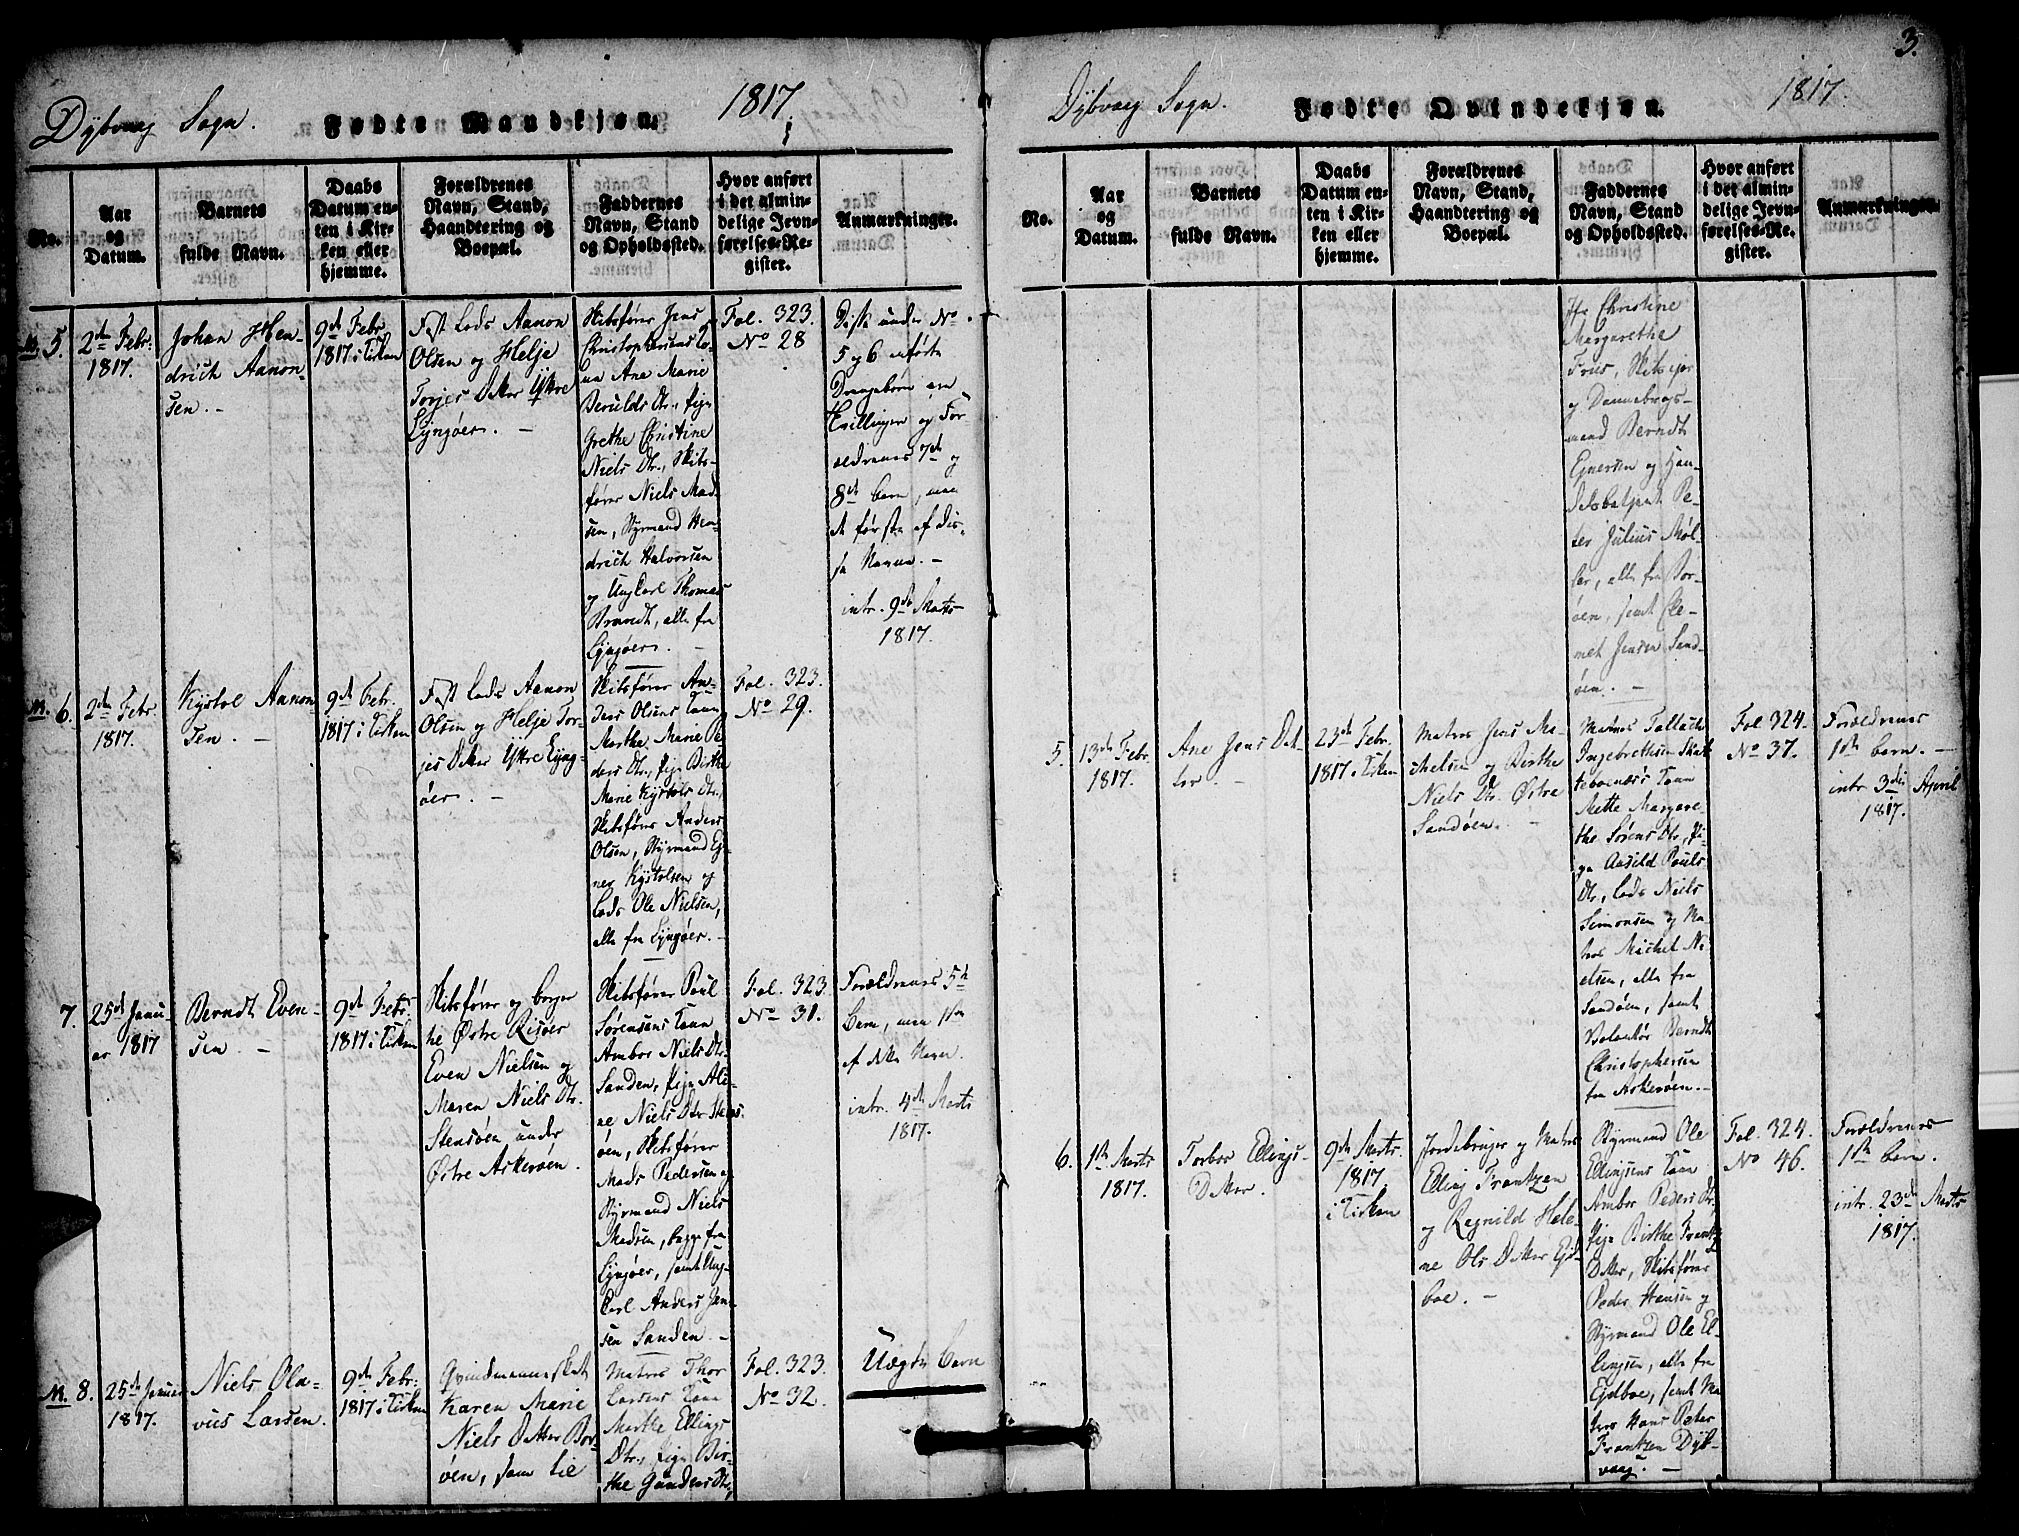 Dybvaag Sogn. Fødte Mandkjøn. 1817.
No.
Aar
og
Datum.
Barnets
fulde Navn.
Daabs
Datum en-
ten i Kir-
ken eller
hjemme.
Forældrenes
Navn, Stand,
Haandtering og
Boepæl.
Faddernes
Navn, Stand
og Opholdssted.
Hvor anført
i det almin-
delige Jevn-
førelses-Re-
gister.
Anmærkninger.
M. 5.
2den Febr.
1817.
Johan Hen-
drich Aanon-
sen. -
9de Febr.
1817 i Kirken
Fast Lods Aanon
Olsen og Helje
Torjes Datter Yttre
Lyngøer. -
Skibsfører Jens
Christophersens Ko-
na Ane Marie
Beruldsdtr., Pige
Grethe Christine
Niels Dtr., Skibs-
fører Niels Mad-
sen, Styrmand Hen-
drich Halvorsen
og Ungkarl Thomas
Brandt, alle fra
Lyngøer. -
Fol. 323.
No 28
Disse under No
5 og 6 anførte
Drengebørn ere
Tvillinger og For-
ældrenes 7de og
8de Barn, men
de første af dis-
se Navne. -
intr. 9de Marts
1817.
M. 6.
2den Febr.
1817.
Kystol Aanon-
sen. -
9de Febr.
1817 i Kirken
Fast Lods Aanon
Olsen og Helje Tor-
jes Datter Yttre Lyng-
øer. -
Skibsfører An-
ders Olsens Kone
Marthe Marie Pe-
ders Dtr., Pige Birthe
Marie Kystols Dtr.,
Skibsfører Anders
Olsen, Styrmand Ej-
ner Kystolsen og
Lods Ole Nielsen,
alle fra Lyngøer. -
Fol. 323.
No 29.
7.
25de Janu-
ar 1817
Berndt Even-
sen. -
9de Febr.
1817 i Kirken
Skibsfører og Borger
til Østre Risøer
Even Nielsen og
Maren Niels Dtr.
Stensøen under
Østre Askerøen.
Skibsfører Poul
Sørensens Kone
Ambor Niels Dtr.
Sanden, Pige Ali-
ne Niels Dtr Stens-
øen, Skibsfører
Mads Pedersen og
Styrmand Niels
Madsen, begge fra
Lyngøer, samt Ung-
Carl Anders Jen-
sen Sanden. -
Fol. 323
No 31.
Forældrenes 5te
Barn, men 1ste
af dette Navn.
intr. 4de Marts
1817.
M. 8.
25de Januar
1817.
Niels Ola-
vus Larsen.
9de Febr.
1817 i Kirken
Qvindmennesket
Karen Marie
Niels Datter Bor-
øen, som til
Matros Thor
Larsens Kone
Marthe Ellings
Dtr., Pige Bir-
the Gunders Dtr,
Fol. 323.
No 32.
Uægte Barn
3.
Dybvaag Sogn. Fødte Qvindekjøn. 1817.
No.
Aar
og
Datum.
Barnets
fulde Navn.
Daabs
Datum en-
ten i Kir-
ken eller
hjemme.
Forældrenes
Navn, Stand,
Haandtering og
Boepæl.
Faddernes
Navn, Stand
og Opholdssted.
Hvor anført
i det almin-
delige Jevn-
førelses-Re-
gister.
Anmærkninger.
Jfr Christine
Margarethe
Friis, Skibsejer
og Dannebrogs-
mand Berndt
Ejnersen og Han-
delsbetjent Pe-
ter Julius Møl-
ler, alle fra Bor-
øen, samt Cle-
met Jensen Sand-
øen. -
5.
13de Febr.
1817.
Ane Jens Dat-
ter -
23de Febr.
1817 i Kirken
Matros Jens Mi-
chelsen og Birthe
Niels Dtr. Østre
Sandøen. -
Matros Tallach
Ingebrethsen
Kone
Mette Margare-
the Sørens Dtr., Pi-
ge Aasild Pouls
Dtr., Lods Niels
Simonsen og Ma-
tros Michel Ni-
elsen, alle fra
Sandøen, samt
Berndt
Christophersen
fra Askerøen. -
Fol. 324.
No 37.
Forældrenes
1ste Barn. -
intr. 3die April
1817.
6.
1ste Marts
1817.
Torbor Ellings-
Datter.
9de Marts.
1817
i Kirken
Jordebruger og Matros
Elling Frantzen
og Regnild Hele-
ne Ols Datter Ejd-
boe. -
Styrmand Ole
Ellingsens Kone
Ambor Peders Dtr.
Pige Birthe Frantz
Datter, Skibsfører
Peder Hansen og
Styrmand Ole El-
lingsen, alle fra
Ejdboe, samt Ma-
tros Hans Peter
Frantzen Dyb-
vaag. -
Fol. 324.
No 46.
Forældrenes
1ste Barn.
intr. 23de Marts
1817.